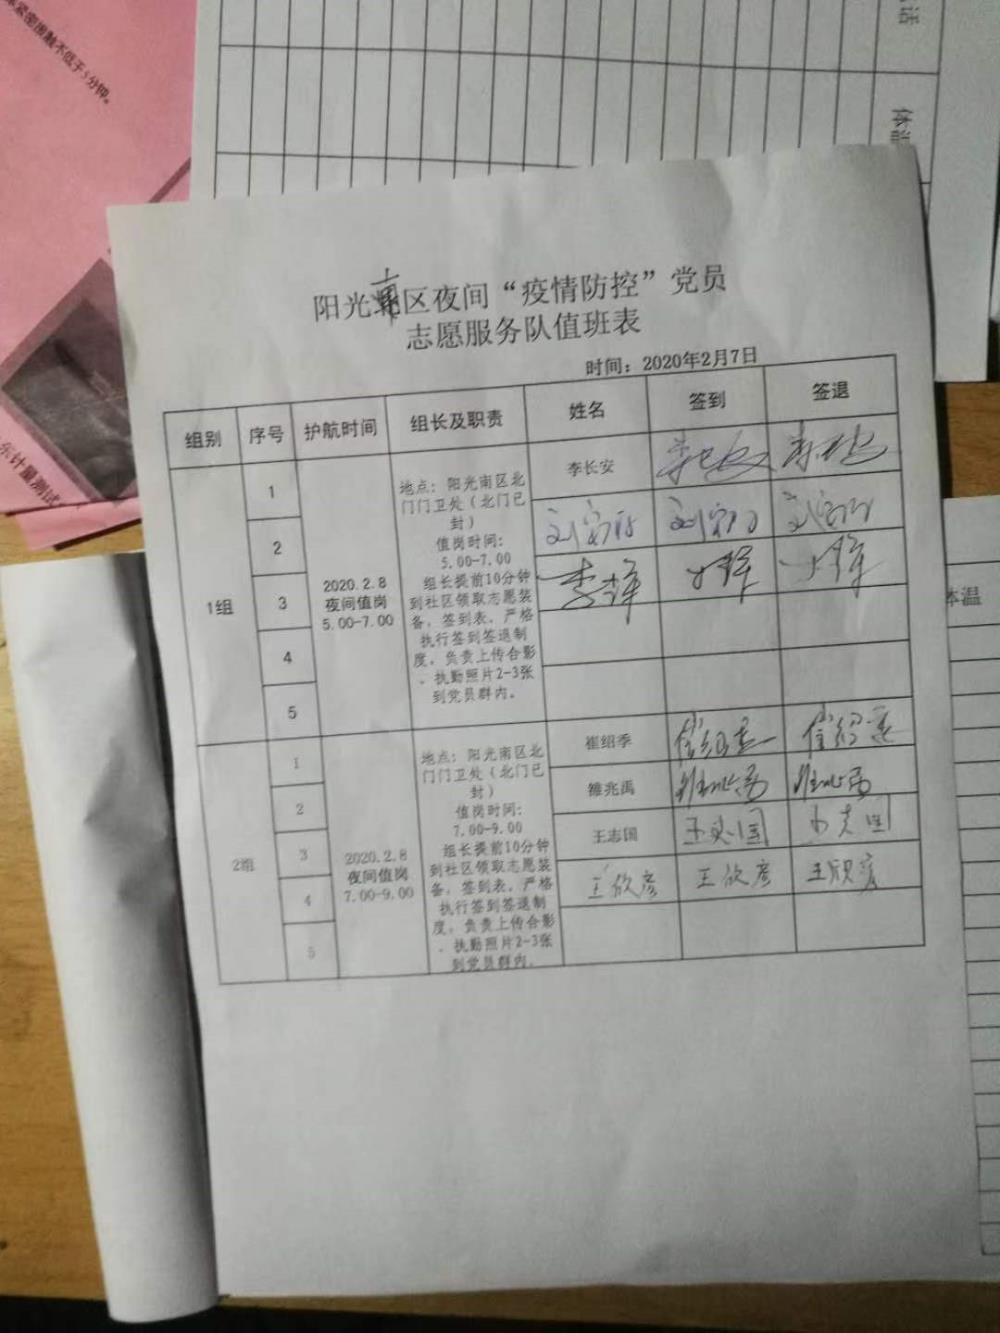 紧密接触不低于5分钟。
体温
阳光南区夜间“疫情防控”党员
志愿服务队值班表
时间：2020年2月7日
组别 序号 护航时间 组长及职责 姓名 签到 签退
1组
1
2
3
4
5
2020.2.8
夜间值岗
5.00-7.00
地点：阳光南区北
门门卫处（北门已
封）
值岗时间：
5.00-7.00
组长提前10分钟
到社区领取志愿装
备，签到表，严格
执行签到签退制
度，负责上传合影
，执勤照片2-3张
到党员群内。
李长安 李长安 李长安
2组
1
2
3
4
5
2020.2.8
夜间值岗
7.00-9.00
地点：阳光南区北
门门卫处（北门已
封）
值岗时间：
7.00-9.00
组长提前10分钟
到社区领取志愿装
备，签到表，严格
执行签到签退制
度，负责上传合影
，执勤照片2-3张
到党员群内。
崔绍季
雒兆禹
王志国 王志国 王志国
王欣彦 王欣彦 王欣彦
东计量测试
体温